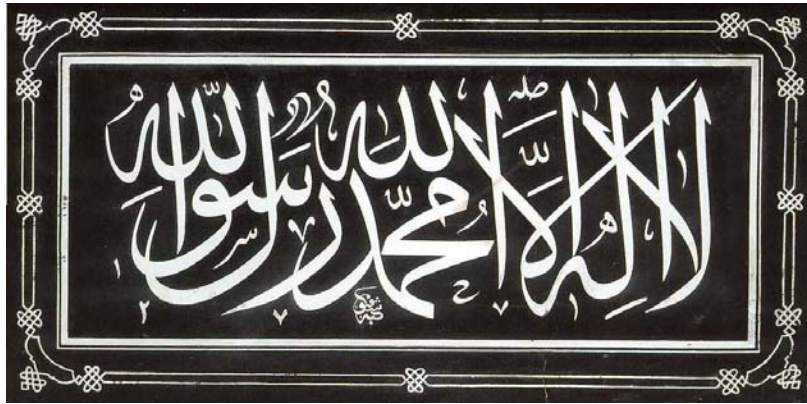 لا اله الّا الله محمّد رسول الله